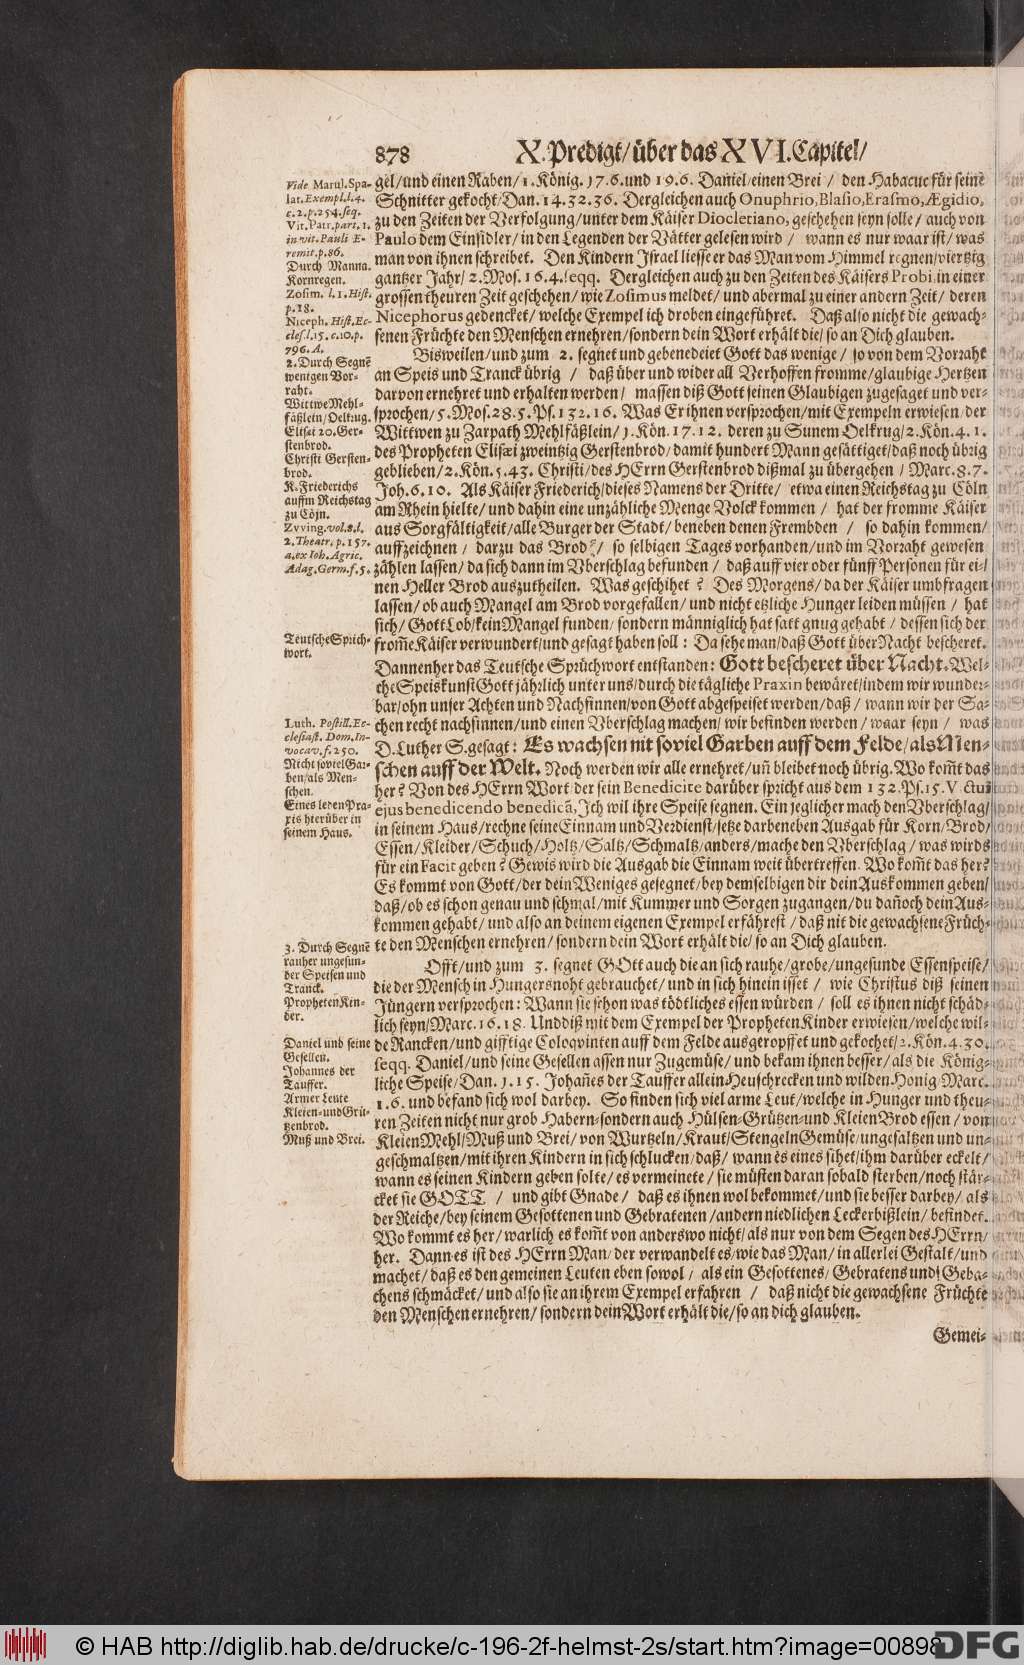 878 X. Predigt/ über das XVI. Capitel/
gel/und einen Raben/1. König. 17.6. und 19.6. Daniel/einen Brei / den Habacuc für seine
Schnitter gekocht/Dan. 14. 32. 36. Dergleichen auch Onuphrio, Blasio, Erasmo, Ægidio,
zu den Zeiten der Verfolgung/unter dem Käiser Diocletiano, geschehen seyn solle/ auch von
Paulo dem Einsidler/ in den Legenden der Vätter gelesen wird / wann es nur waar ist/ was
man von ihnen schreibet. Den Kindern Jsrael liesse er das Man vom Himmel regnen/viertzig
gantzer Jahr/ 2. Mos. 16. 4. seqq. Dergleichen auch zu den Zeiten des Käisers Probi, in einer
grossen theuren Zeit geschehen/ wie Zosimus meldet/ und abermal zu einer andern Zeit/ deren
Nicephorus gedencket/ welche Exempel ich droben eingeführet. Daß also nicht die gewach-
senen Früchte den Menschen ernehren/sondern dein Wort erhält die/ so an Dich glauben.
Bisweilen/und zum 2. segnet und gebenedeiet Gott das wenige/ so von dem Vorraht
an Speis und Tranck übrig / daß über und wider all Verhoffen fromme/glaubige Hertzen
darvon ernehret und erhalten werden/ massen diß Gott seinen Glaubigen zugesaget und ver-
sprochen/ 5. Mos. 28. 5. Ps. 132. 16. Was Er ihnen versprochen/mit Exempeln erwiesen/der
Wittwen zu Zarpath Mehlfäßlein/ 1. Kön. 17. 12. deren zu Sunem Oelkrug/2. Kön. 4. 1.
des Propheten Elisæi zweintzig Gerstenbrod/damit hundert Mann gesättiget/daß noch übrig
geblieben/2. Kön. 5. 43. Christi/des HErrn Gerstenbrod dißmal zu übergehen / Marc. 8. 7.
Joh. 6. 10. Als Käiser Friederich/dieses Namens der Dritte/ etwa einen Reichstag zu Cöln
am Rhein hielte/ und dahin eine unzähliche Menge Volck kommen / hat der fromme Käiser
aus Sorgfältigkeit/alle Burger der Stadt/ beneben denen Frembden / so dahin kommen/
auffzeichnen / darzu das Brod / so selbigen Tages vorhanden/und im Vorraht gewesen
zählen lassen/ da sich dann im Vberschlag befunden / daß auff vier oder fünff Personen für ei-
nen Heller Brod auszutheilen. Was geschihet ? Des Morgens/ da der Käiser umbfragen
lassen/ ob auch Mangel am Brod vorgefallen/ und nicht etzliche Hunger leiden müssen / hat
sich/ Gott Lob/kein Mangel funden/ sondern männiglich hat satt gnug gehabt / dessen sich der
from̃e Käiser verwundert/und gesagt haben soll : Da sehe man/daß Gott über Nacht bescheret.
Dannenher das Teutsche Sprüchwort entstanden: Gott bescheret über Nacht. Wel-
che Speiskunst Gott jährlich unter uns/durch die tägliche Praxin bewäret/indem wir wunder-
bar/ohn unser Achten und Nachsinnen/von Gott abgespeiset werden/daß / wann wir der Sa-
chen recht nachsinnen/und einen Vberschlag machen/ wir befinden werden/ waar seyn / was
D. Luther S. gesagt : Es wachsen nit soviel Garben auff dem Felde/als Men-
schen auff der Welt. Noch werden wir alle ernehret/uñ bleibet noch übrig. Wo kom̃t das
her? Von des HErrn Wort der sein Benedicite darüber spricht aus dem 132. Ps. 15. V. ctui
ejus benedicendo benedicã, Jch wil ihre Speise segnen. Ein jeglicher mach den Vberschlag/
in seinem Haus/rechne seine Einnam und Verdienst/setze darbeneben Ausgab für Korn/Brod/
Essen/Kleider/Schuch/Holtz/Saltz/Schmaltz/anders/mache den Vberschlag / was wirds
für ein Facit geben? Gewis wird die Ausgab die Einnam weit übertreffen. Wo kom̃t das her?
Es kommt von Gott/der dein Weniges gesegnet/bey demselbigen dir dein Auskommen geben/
daß/ob es schon genau und schmal/mit Kummer und Sorgen zugangen/du dañoch dein Aus-
kommen gehabt/und also an deinem eigenen Exempel erfährest / daß nit die gewachsene Früch-
te den Menschen ernehren/ sondern dein Wort erhält die/ so an Dich glauben.
Offt/und zum 3. segnet GOtt auch die an sich rauhe/grobe/ungesunde Essenspeise/
die der Mensch in Hungersnoht gebrauchet/ und in sich hinein isset / wie Christus diß seinen
Jüngern versprochen: Wann sie schon was tödtliches essen würden / soll es ihnen nicht schäd-
lich seyn/Marc. 16. 18. Und diß mit dem Exempel der Propheten Kinder erwiesen/welche wil-
de Rancken/und gifftige Coloqvinten auff dem Felde ausgeropffet und gekochet/2. Kön. 4. 30.
seqq. Daniel/und seine Gesellen assen nur Zugemüse/ und bekam ihnen besser/als die König-
liche Speise/Dan. 1. 15. Johañes der Tauffer allein Heuschrecken und wilden Honig/ Marc.
1. 6. und befand sich wol darbey. So finden sich viel arme Leut/welche in Hunger und theu-
ren Zeiten nicht nur grob Habern-sondern auch Hülsen-Grützen-und Kleien Brod essen / von
Kleien Mehl/Muß und Brei/ von Wurtzeln/Kraut/Stengeln Gemüse/ungesaltzen und un-
geschmaltzen/mit ihren Kindern in sich schlucken/daß/ wann es eines sihet/ihm darüber eckelt/
wann es seinen Kindern geben solte/es vermeinete/ sie müsten daran sobald sterben/noch stär-
cket sie GOTT / und gibt Gnade / daß es ihnen wol bekommet/und sie besser darbey/ als
der Reiche/bey seinem Gesottenen und Gebratenen /andern niedlichen Leckerbißlein/ befindet.
Wo kommt es her/warlich es kom̃t von anderswo nicht/als nur von dem Segen des HErrn/
her. Dann es ist des HErrn Man/der verwandelt es/wie das Man/ in allerlei Gestalt/und
machet/ daß es den gemeinen Leuten eben sowol / als ein Gesottenes/Gebratens und Geba-
chens schmäcket/ und also sie an ihrem Exempel erfahren / daß nicht die gewachsene Früchte
den Menschen ernehren/ sondern dein Wort erhält die/ so an dich glauben.
Gemei-
Vide Marul. Spa-
lat. Exempl. l. 4.
c. 2. p. 254. seq.
Vit. Patr. part. 1.
in vit. Pauli E-
remit. p. 86.
Durch Manna.
Kornregen.
Zosim. l. 1. Hist.
p. 18.
Niceph. Hist. Ec-
cles. l. 15. c. 10. p.
796. A.
2. Durch Segnẽ
wenigen Vor-
raht.
Wittwe Mehl-
fäßlein/Oelkrug.
Elisæi 20. Ger-
stenbrod.
Christi Gersten-
brod.
K. Friederichs
auffm Reichstag
zu Cöln.
Zvving. vol. 8. l.
2. Theatr. p. 157.
a. ex Ioh. Agric.
Adag. Germ. f. 5.
Teutsche Sprich-
wort.
Luth. Postill. Ec-
clesiast. Dom. In-
vocav. f. 250.
Nicht soviel Gar-
ben/als Men-
schen.
Eines jeden Pra-
xis hierüber in
seinem Haus.
3. Durch Segnẽ
rauher ungesun-
der Speisen und
Tranck.
Propheten Kin-
der.
Daniel und seine
Gesellen.
Johannes der
Tauffer.
Armer Leute
Kleien-und Grü-
tzenbrod.
Muß und Brei.
© HAB http://diglib.hab.de/drucke/c-196-2f-helmst-2s/start.htm?image=00898
DFG